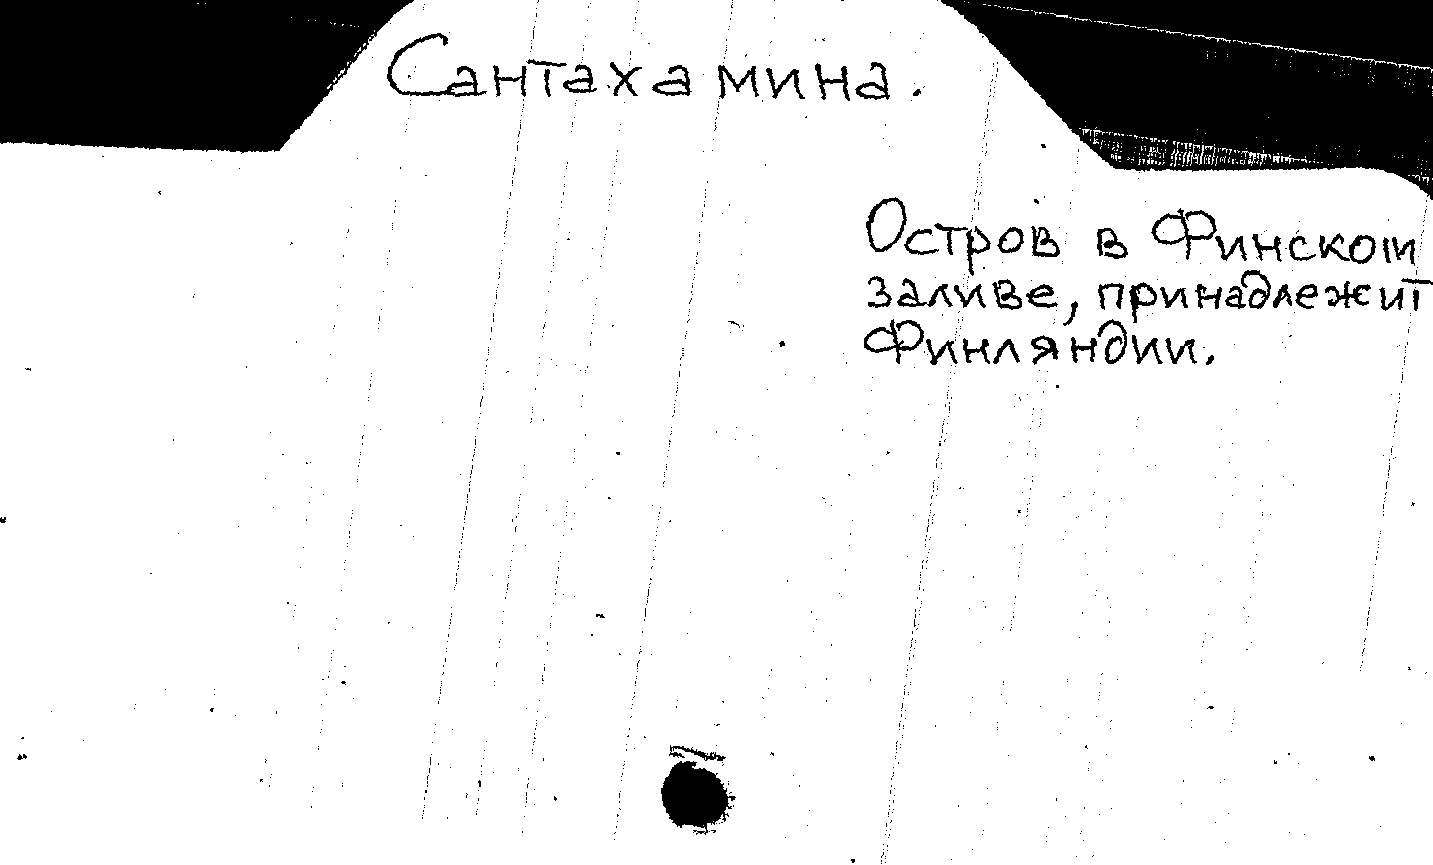 Сантахамина.
Остров в Финском
заливе, принадлежит
Финляндии.